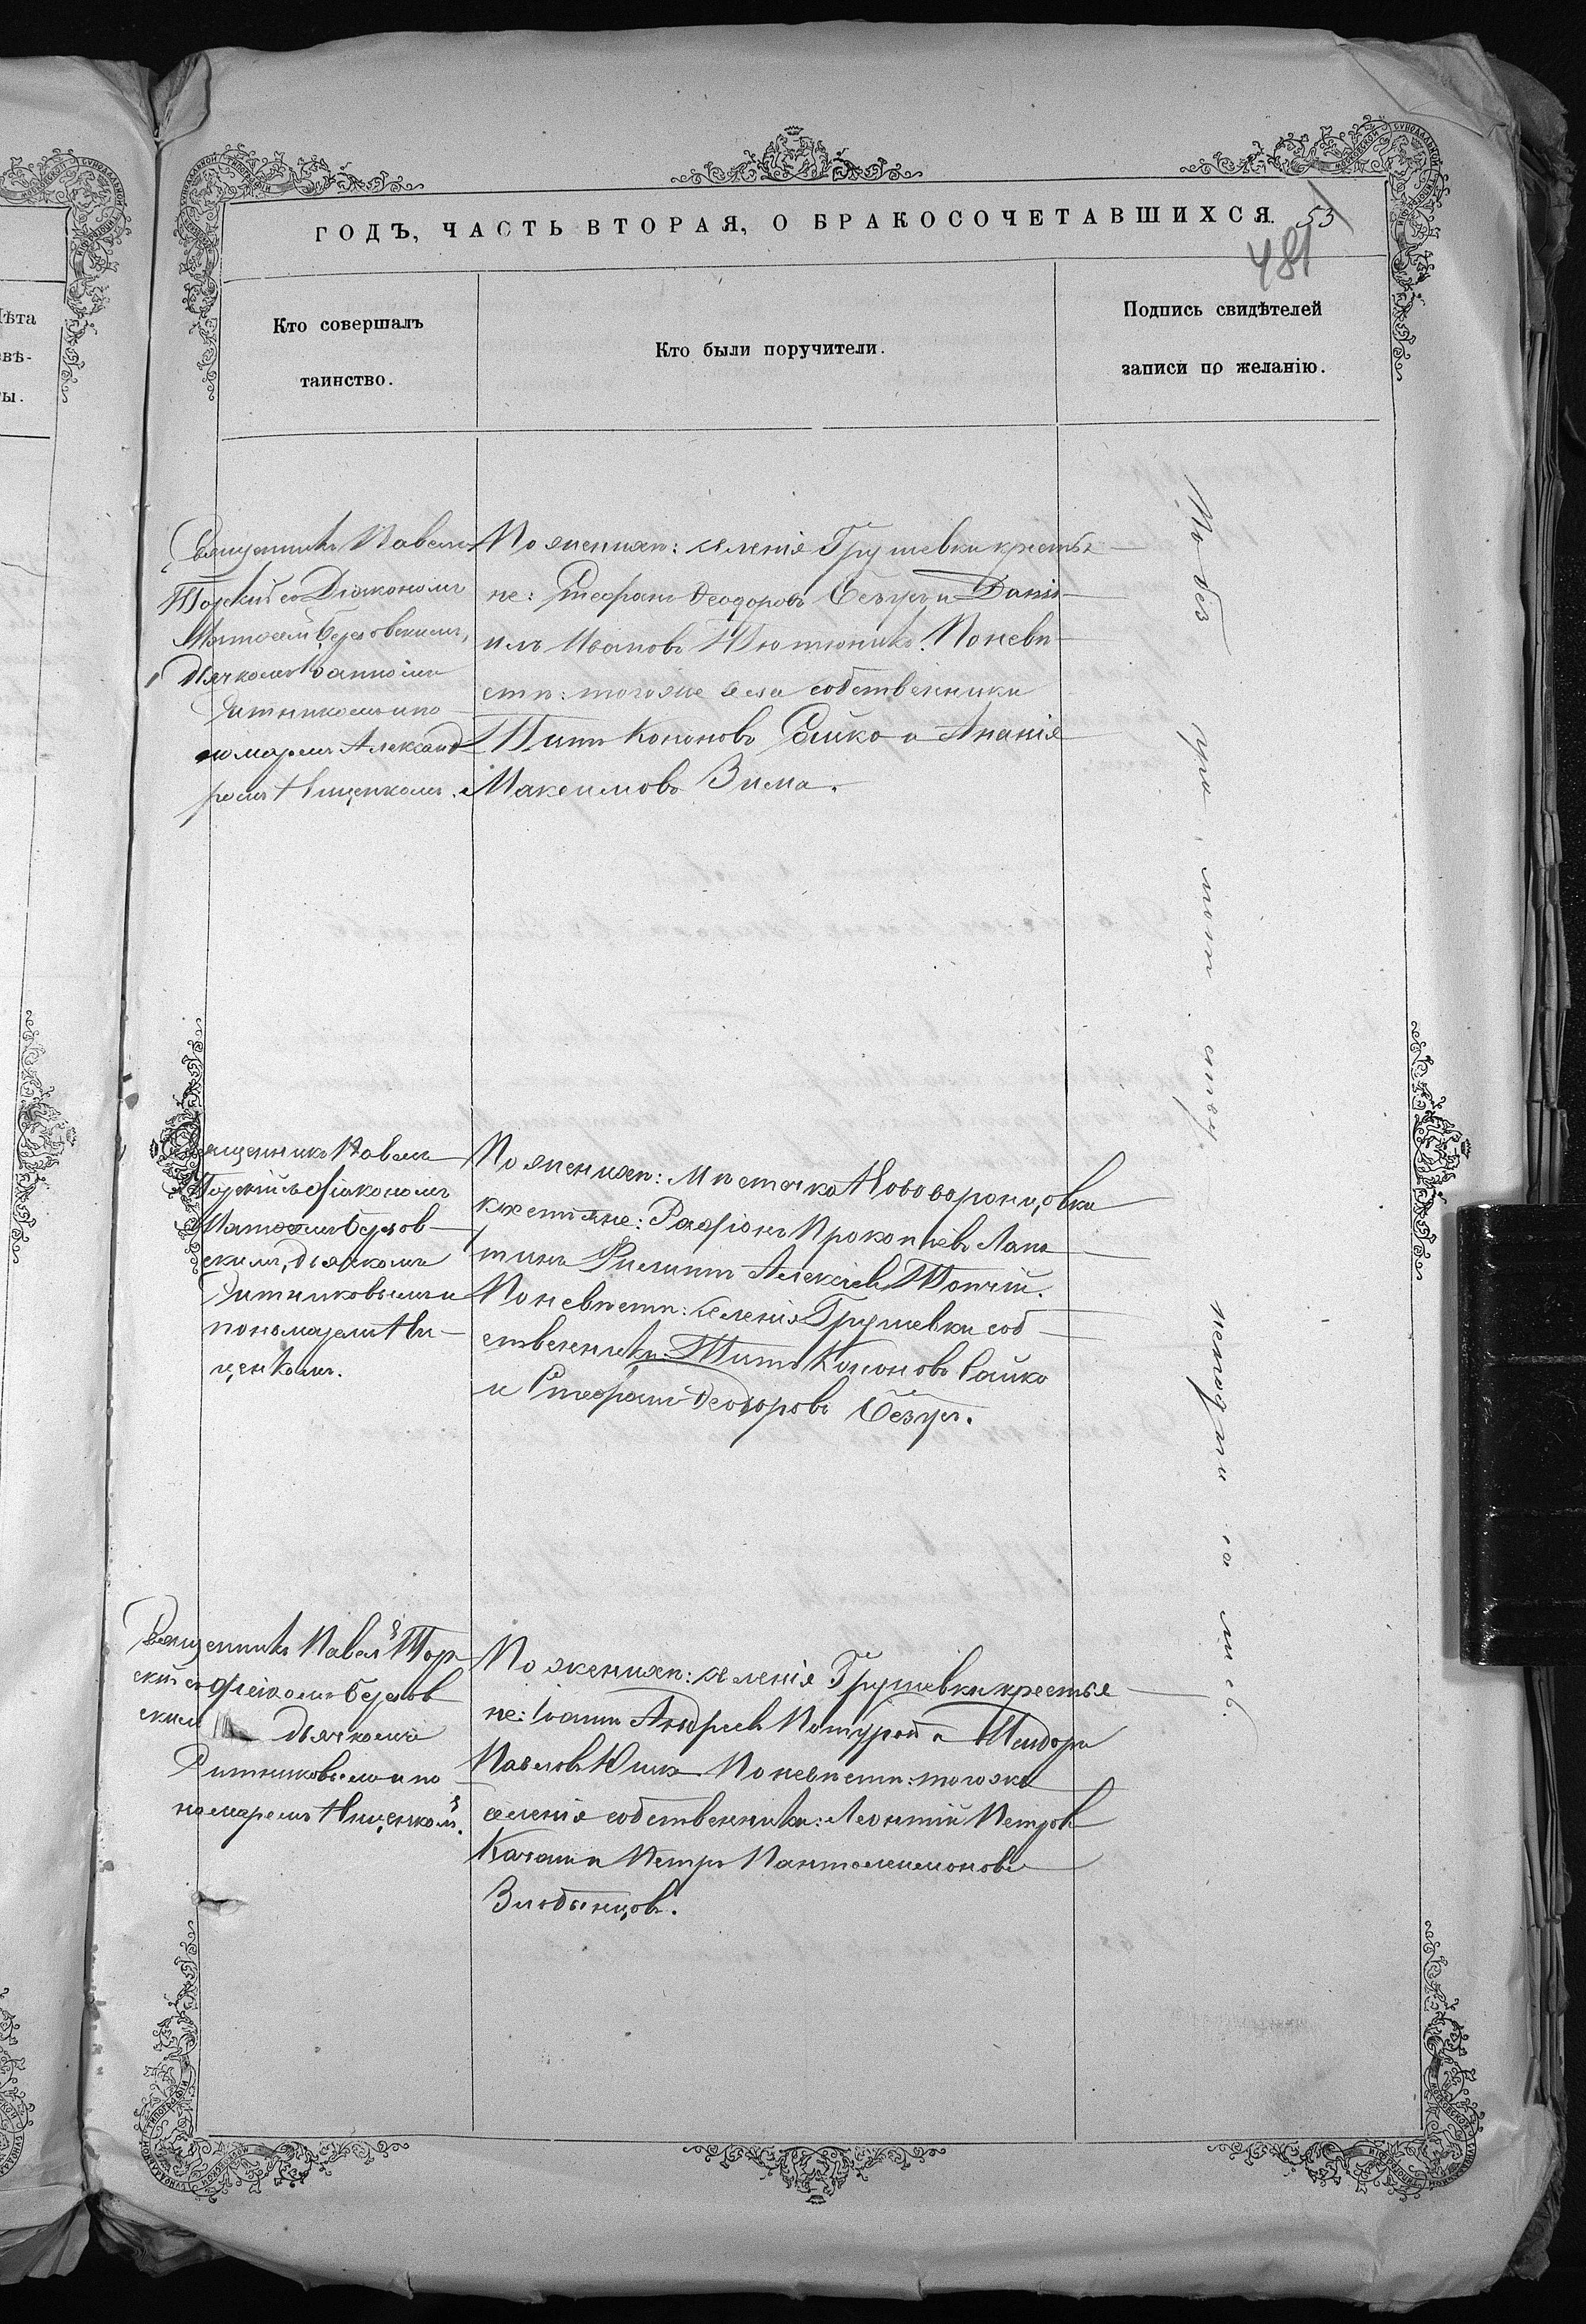 ГОДЪ, ЧАСТЬ ВТОРАЯ, О БРАКОСОЧЕТАВШИХСЯ. 53
481
Кто совершалъ
таинство.
Кто были поручители.
Подпись свидѣтелей
записи по желанію.
Священникъ Павелъ
Торскій съ Діакономъ
Дьячкомъ Іоанномъ
Ситниковымъ и по
номаремъ Александ
ромъ Нищенкомъ.
По женихѣ: селенія Грушевки крестья
не: Стефанъ Ѳеодоровъ Безугъ и Дані
илъ Ивановъ Тютюникъ. По невѣ
стѣ: того же села собственники
Титъ Кононовъ Сайко и Ананія
Максимовъ Зима.
Священникъ Павелъ
Торскій съ Діакономъ
скимъ, дьячкомъ
Ситниковымъ и
пономаремъ Ни
щенкомъ.
По женихѣ: Мѣстечка Нововоронцовки
крестьяне: Радіонъ Прокопіевъ Лапа
тинъ Филиппъ Алексіевъ Топчій.
По невѣстѣ: селенія Грушевки соб
ственники Титъ Кононовъ Сайко
и Стефанъ Ѳеодоровъ Безугъ.
Священникъ Павелъ Тор
скій съ Діакономъ
скимъ дьячкомъ
Ситниковымъ и по
номаремъ Нищенкомъ.
По женихѣ: селенія Грушевки крестья
не: Іоаннъ Андреевъ и Исидоръ
Павловъ По невѣстѣ: того же
селенія собственники: Леонтій Петровъ
Качанъ и Петръ Пантелеимоновъ
Злобинцовъ.